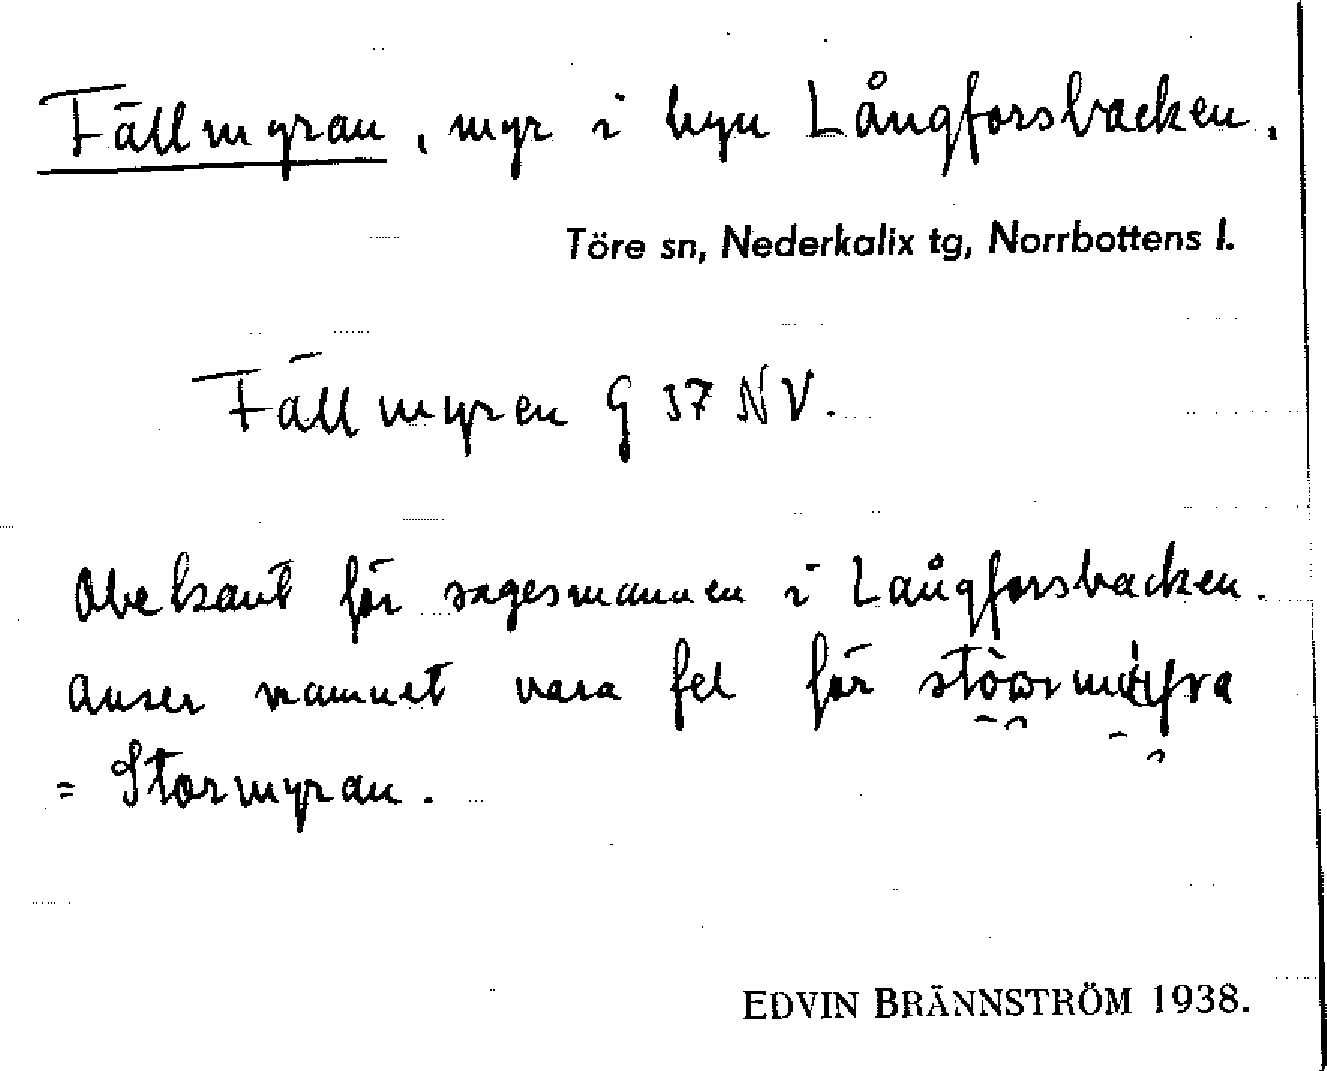 Fällmyran, myr i byn Långforsbacken.
Töre sn, Nederkalix tg, Norrbottens l.
Fällmyren G 37 NV.
Obekant för sagesmannen i Långforsbacken.
Anser namnet vara fel för
= Stormyran.
EDVIN BRÄNNSTRÖM 1938.